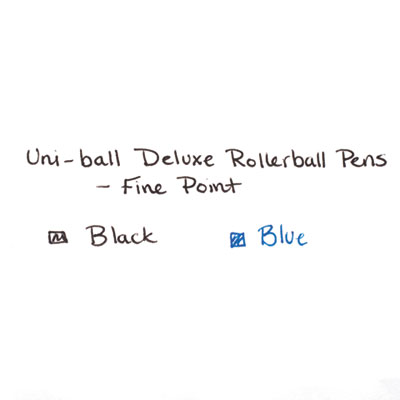 Uni-ball Deluxe Rollerball Pens
- Fine Point
Black Blue